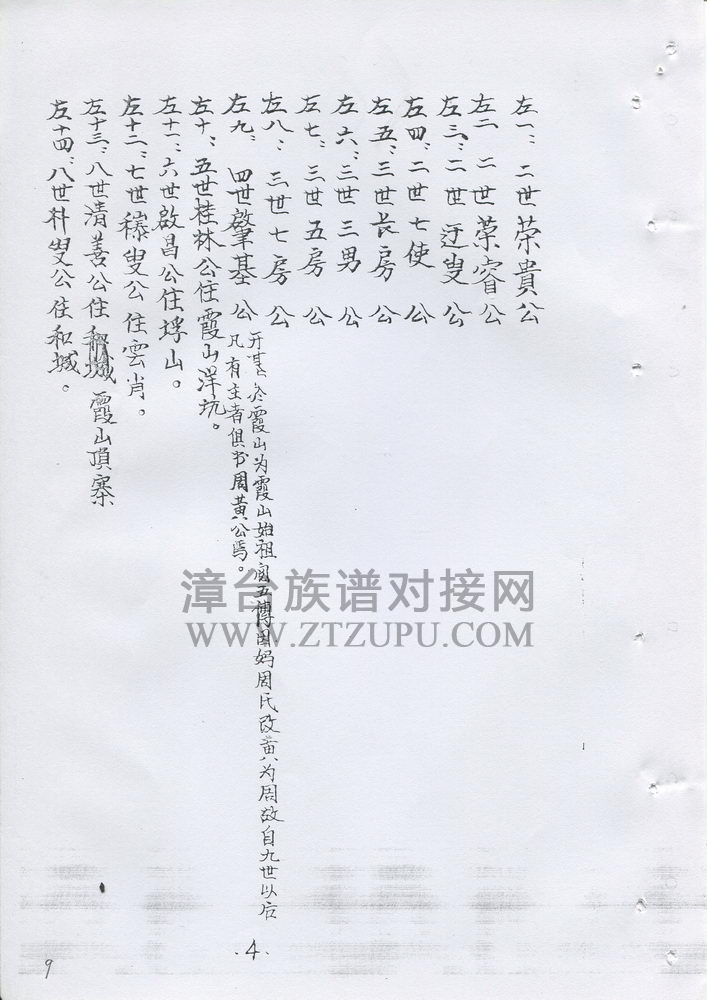 左一：二世荣貴公
左二 二世荣睿公
左三：二世迂叟公
左四：二世七使公
左五：三世长房公
左六：三世三男公
左七：三世五房公
左八：三世七房公
左九：四世啟肇基公
开基于霞山为霞山始祖 五傳因妈周氏改黄为周故自九世以后
凡有主者俱书周黄公焉。
左十：五世桂林公住霞山洋坑。
左十一：六世啟昌公住垺山。
左十二：七世 叟公住雲肖。
左十三：八世清善公住 城霞山頂寨
左十四：八世朴叟公住和城。
·4·
9
漳台族谱对接网
WWW.ZTZUPU.COM